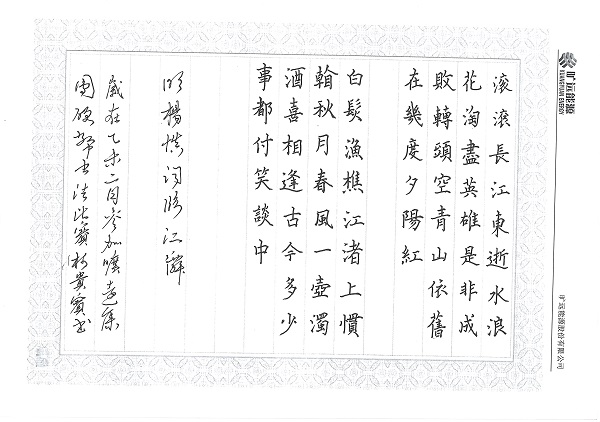 旷远能源
KUANGYUAN ENERGY
旷远能源股份有限公司
滚滚長江東逝水浪
花淘盡英雄是非成
敗轉頭空青山依舊
在幾度夕陽紅
白髮漁樵江渚上慣
翰秋月春風一壺濁
酒喜相逢古今多少
事都付笑談中
明楊慎詞臨江
歲在乙未二月參加曠遠集
團硬筆書法比賽 貴賓書